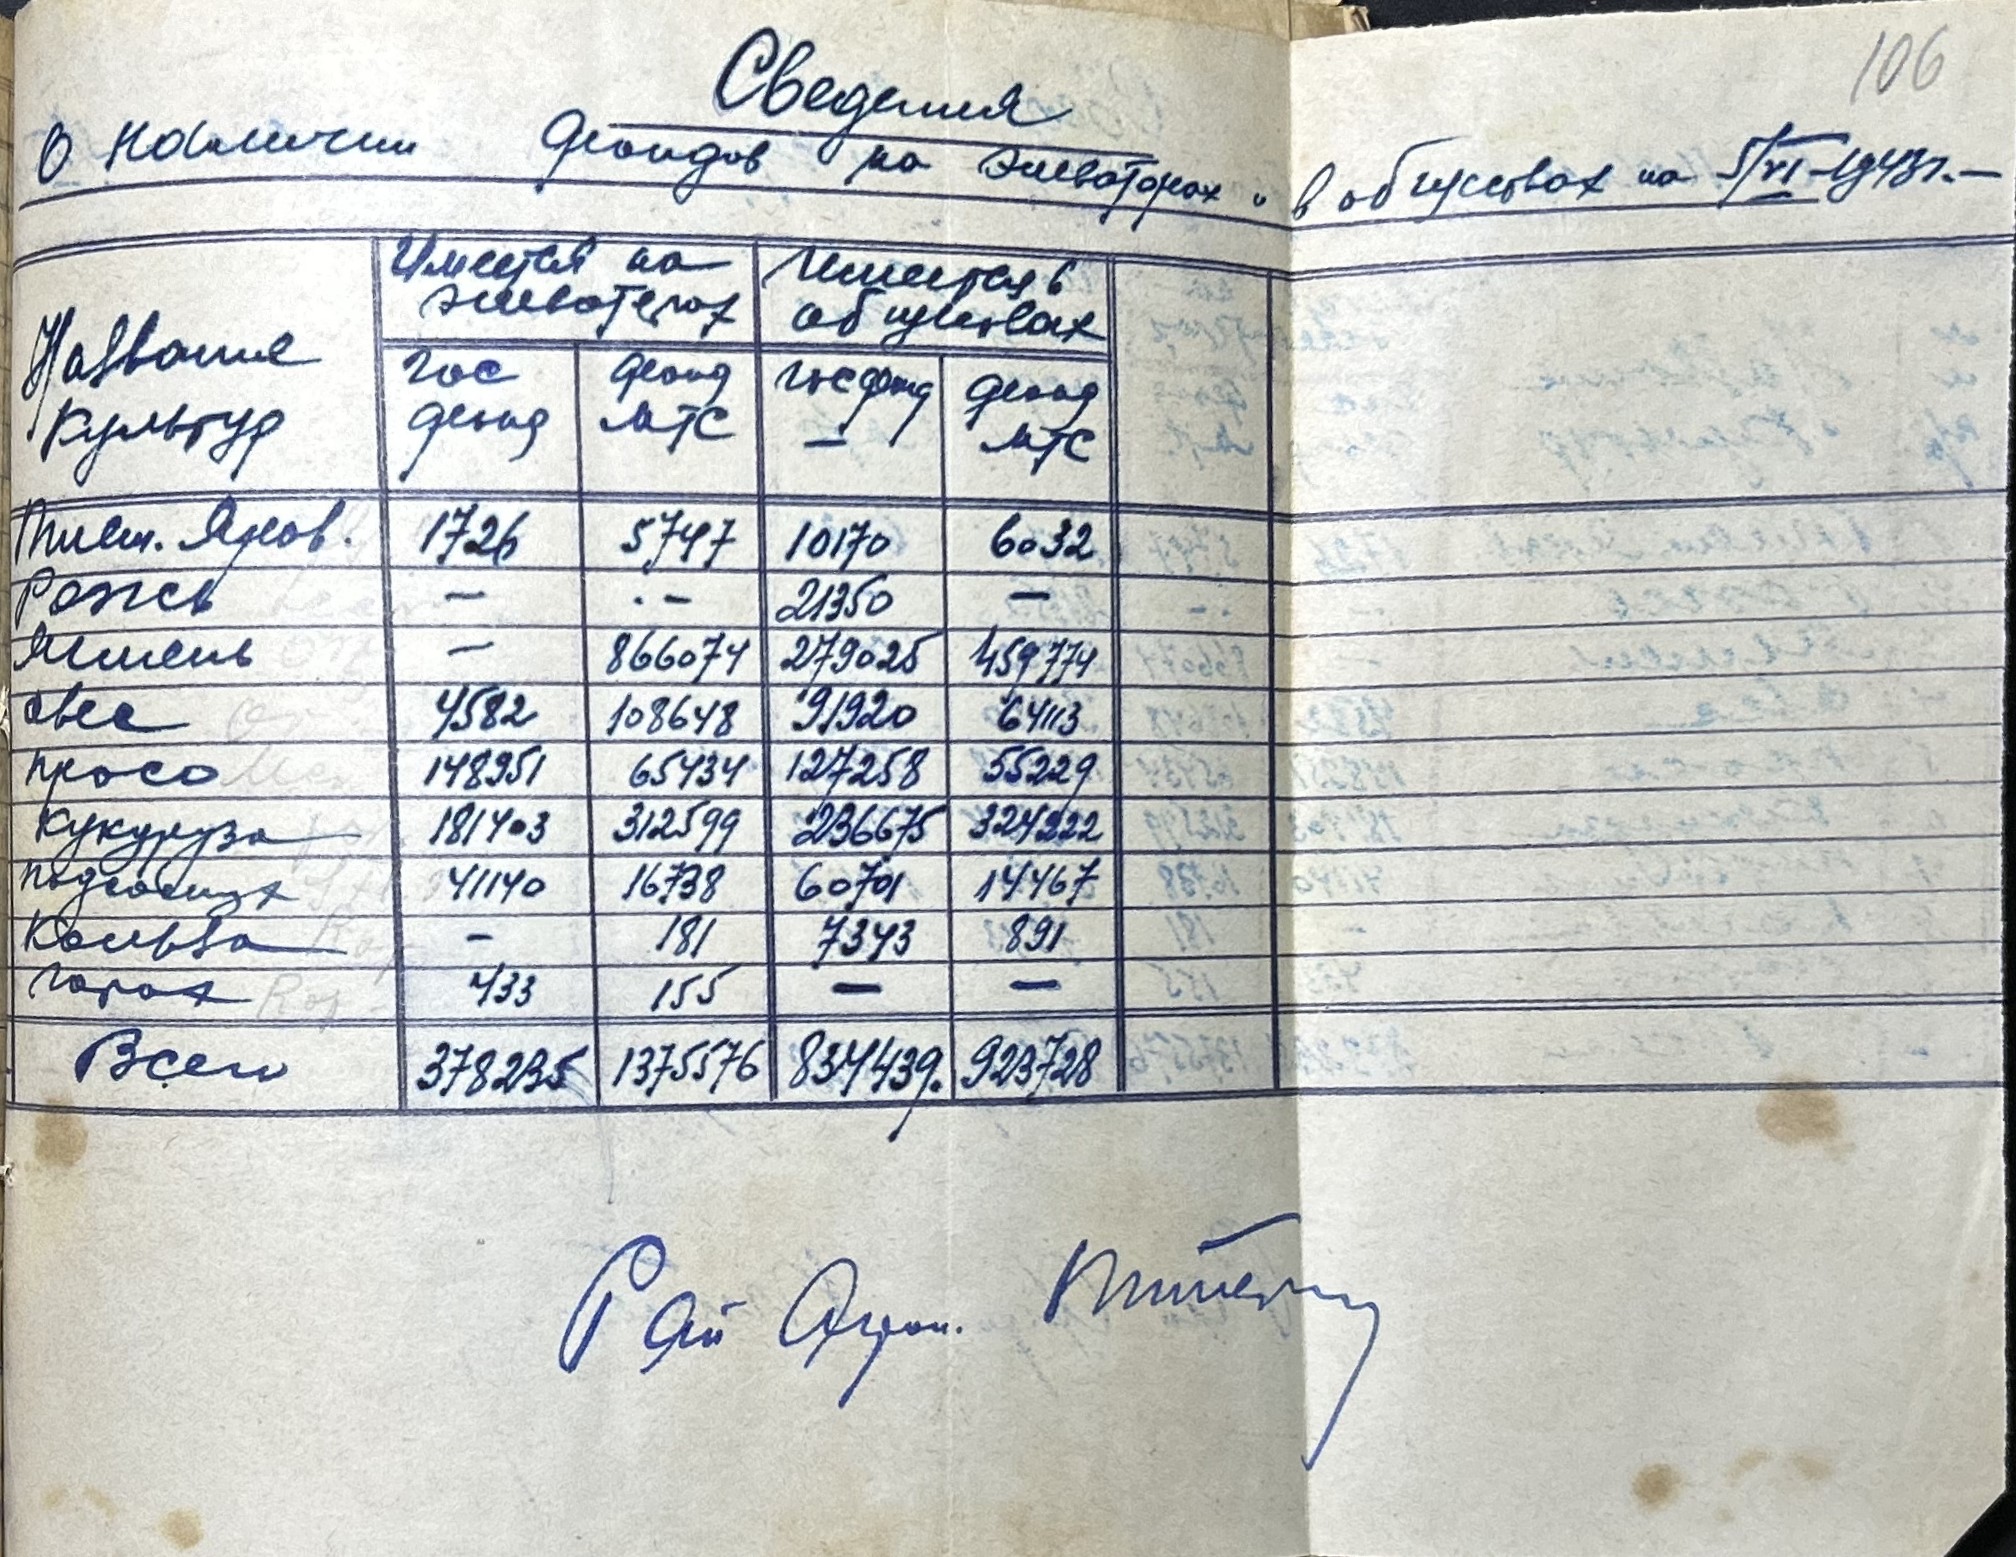 106
Сведения
О наличии фондов на элеваторах и в обществах на 5/VI-1943г.
Название культур
Имеется на элеваторах
Имеется в обществах
гос фонд
фонд МТС
госфонд —
фонд МТС
Пшен. Яров. 1726 5747 10170 6032
Рожь — - — 21350 —
Ячмень — 866074 279025 459774
Овес 4582 108648 91920 64113
Просо 148951 65434 127258 55229
Кукуруза 181403 312599 236675 324222
Подсолнух 41140 16738 60701 14467
Кольза - 181 7343 891
Горох 433 155 — —
Всего 378235 1375576 834439. 923728
Рай Агрон.